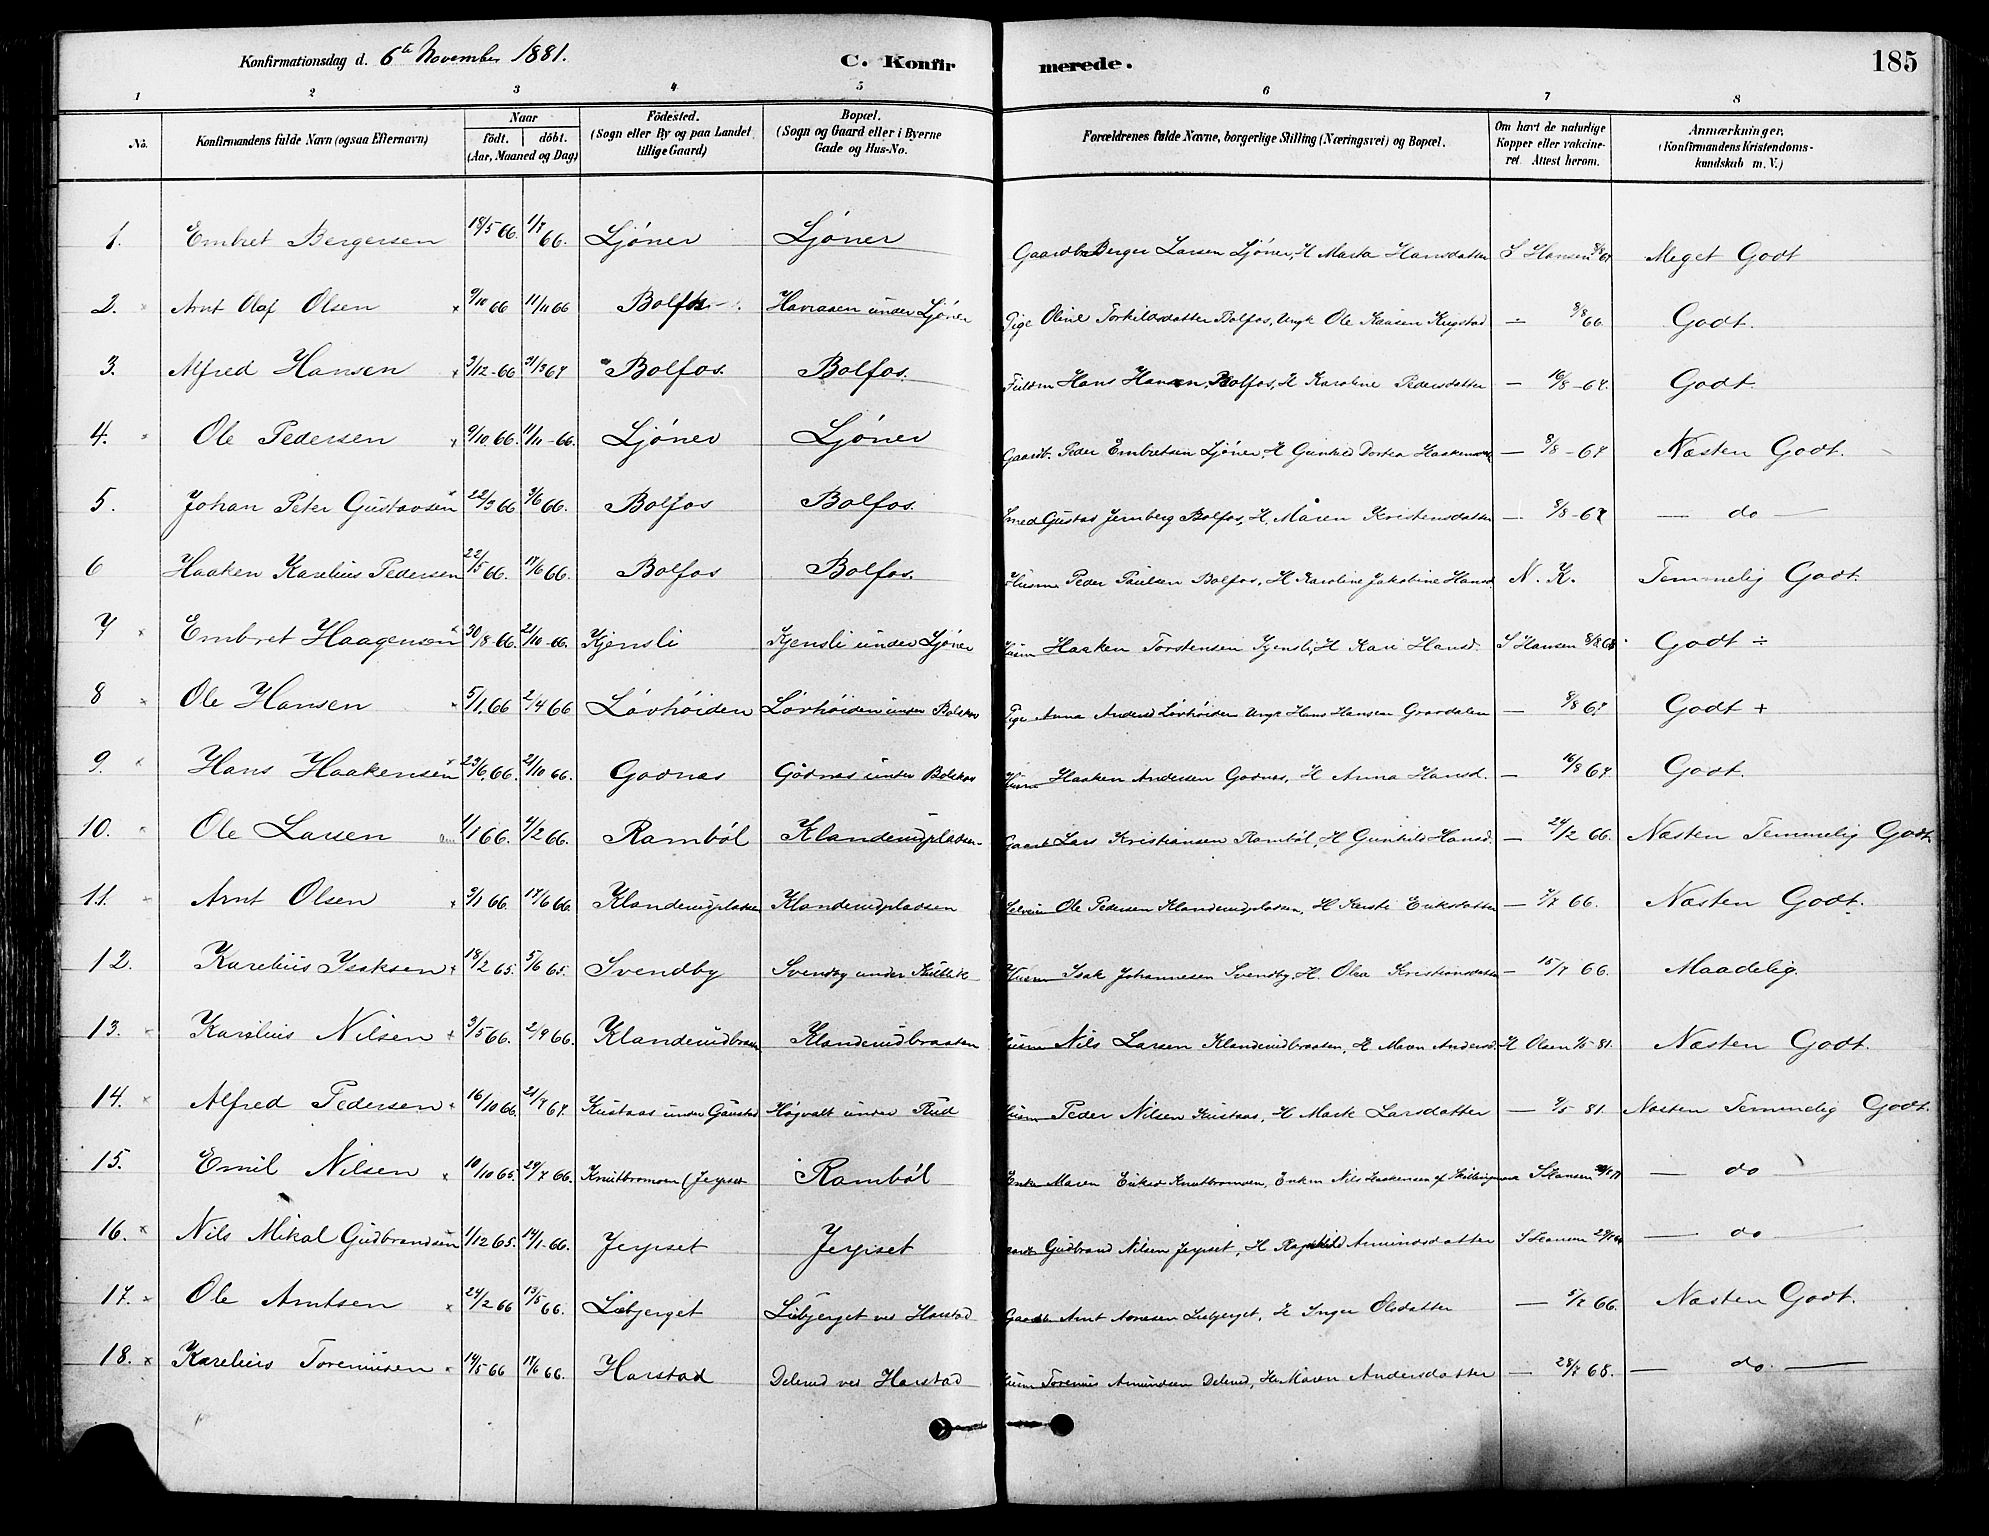 Konfirmationsdag d. 6te November 1881.
C. Konfir merede. 185
1 2 3 4 5 6 7 8
No. Konfirmandens fulde Navn (ogsaa Efternavn) Naar født. døbt. (Aar, Maaned og Dag) Fødested. (Sogn eller By og paa Landet tillige Gaard) Bopæl. (Sogn og Gaard eller i Byerne Gade og Hus-No. Forældrenes fulde Navne, borgerlige Stilling (Næringsvei) og Bopæl. Om havt de naturlige Kopper eller vakcineret. Attest herom. Anmærkninger, (Konfirmandens Kristendomskundskab m. V.)
1. Embret Bergersen 18/5 66. 1/7 66. Ljöner Ljöner Gaardbr Berger Larsen Ljöner, H Marta Hansdatter S Hansen Meget Godt
2. Arnt Olaf Olsen 9/10 66 11/11 66 Bolfos Havraasen under Ljöner Pige Oline Torkildsdatter Bolfos, Ungk Ole Hansen - 8/8 66 Godt.
3. Alfred Hansen 3/12-66 31/3 67 Bolfos. Bolfos. Hans Hansen, Bolfos, H Karoline Pedersdatter — 16/8-67. Godt.
4. Ole Pedersen 9/10 66. 11/11-66. Ljöner Ljöner Gaardb. Peder Embretsen Ljöner, H Gunhild Dortea — 8/8-67 Næsten Godt.
5. Johan Peter Gustavsen 22/3 66 3/6 66. Bolfos Bolfos. Smed Gustav Jernberg Bolfos, H. Maren Kristensdatter — 8/8-67 — do —
6 Haaken Karelius Pedersen 22/5 66. 17/6 66. Bolfos Bolfos. Husm Peder Paulsen Bolfos, H Karoline Jakobine Hansd N. K. Temmelig Godt.
7 Embret Haagensen 30/8-66. 21/10-66. Kjensli Kjensli under Ljöner Husm Haaken Torstensen Kjensli, H Kari Hansd. S Hansen 8/8 68 Godt ÷
8 Ole Hansen 5/1 66 2/4 66 Lövhöiden Lövhöiden under Pige Anna Andersd Lövhöiden Ungk Hans Hansen Graadalen — 8/8 67 Godt +
9. Hans Haakensen 23/6 66. 21/10 66. Godnes Godnes under Husm Haaken Andersen Godnes, H Anna Hansd. — 16/8 67. Godt.
10. Ole Larsen 1/1 66. 4/2 66. Ramböl Klanderudpladsen Gaardb Lars Kristiansen Ramböl, H Gunhild Hansd. — 24/2 66. Næsten Temmelig Godt.
11. Arnt Olsen 3/1 66. 17/6 66. Klanderudpladsen Klanderudpladsen Ole Pedersen Klanderudpladsen, H Kersti Eriksdatter — 7/7 66. Næsten Godt.
12. Karelius Isaksen 18/2 65. 5/6 65. Svendby Svendby under Husm Isak Johannesen Svendby, H. Olea Kristiansdatter — 15/7 66. Maadelig.
13. Karelius Nilsen 3/5 66. 2/9 66. Klanderudbraaten Klanderudbraaten Husm Nils Larsen Klanderudbraaten, H Maren Andersd. H Olsen -81. Næsten Godt.
14. Alfred Pedersen 16/10 66. 21/7 67. Kustaas under Gaustad Högvalt under Rud Husm Peder Nilsen Kustaas, H Marte Larsdatter — 9/5 81. Næsten Temmelig Godt.
15. Emil Nilsen 10/10 65. 29/7 66. Knutbromoen (Jerpset Ramböl Enke Maren Eriksd Knutbromoen, Enkm Nils Haakensen af S Hansen — do —
16. Nils Mikal Gudbrandsen 1/12 65. 14/1-66. Jerpset Jerpset Gaardb Gudbrand Nilsen Jerpset, H Ragnhild Amundsdatter S Hansen — do —
17. Ole Arntsen 24/2 66 13/5 66. Liebjerget Liebjerget ved Harstad Gaardb Arnt Arnesen Liebjerget, H Inger Olsdatter — 5/7 66. Næsten Godt.
18. Karelius Toreniusen 14/5 66 17/6 66. Harstad Delerud ved Harstad Husm Torenius Amundsen Delerud, H Maren Andersdatter — 28/7 68. — do. —